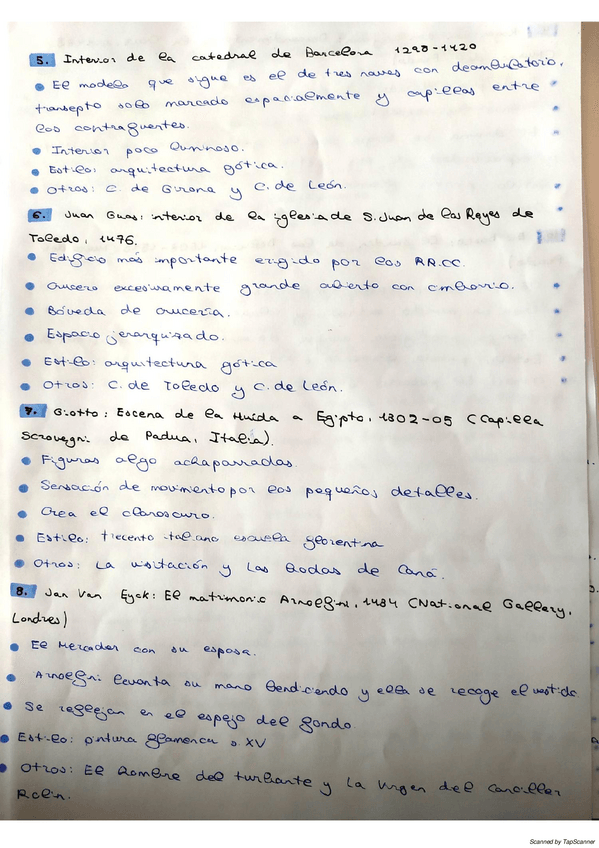 5. Interior de la catedral de Barcelona 1298-1420
• El modelo que sigue es el de tres naves con deambulatorio,
transepto solo marcado espacialmente y capillas entre
los contrafuertes.
• Interior poco luminoso.
• Estilo: arquitectura gótica.
• Otros: C. de Girona y C. de León.
6. Juan Guas: interior de la iglesia de S. Juan de los Reyes de
Toledo, 1476.
• Edificio más importante erigido por los RR.CC.
• Crucero excesivamente grande abierto con cimborrio.
• Bóveda de crucería.
• Espacio jerarquizado.
• Estilo: arquitectura gótica
• Otros: C. de Toledo y C. de León.
7. Giotto: Escena de la Huída a Egipto, 1302-05 (Capilla
Scrovegni de Padua, Italia).
• Figuras algo achaparradas.
• Sensación de movimiento por los pequeños detalles.
• Crea el claroscuro.
• Estilo: trecento italiano escuela florentina
• Otros: La visitación y Las Bodas de Caná.
8. Jan Van Eyck: El matrimonio Arnolfini, 1434 (National Gallery,
Londres)
• El Mercader con su esposa.
• Arnolfini levanta su mano bendiciendo y ella se recoge el vestido
• Se reflejan en el espejo del fondo.
• Estilo: pintura flamenca s. XV
• Otros: El hombre del turbante y La Virgen del Canciller
Rolin.
Scanned by TapScanner